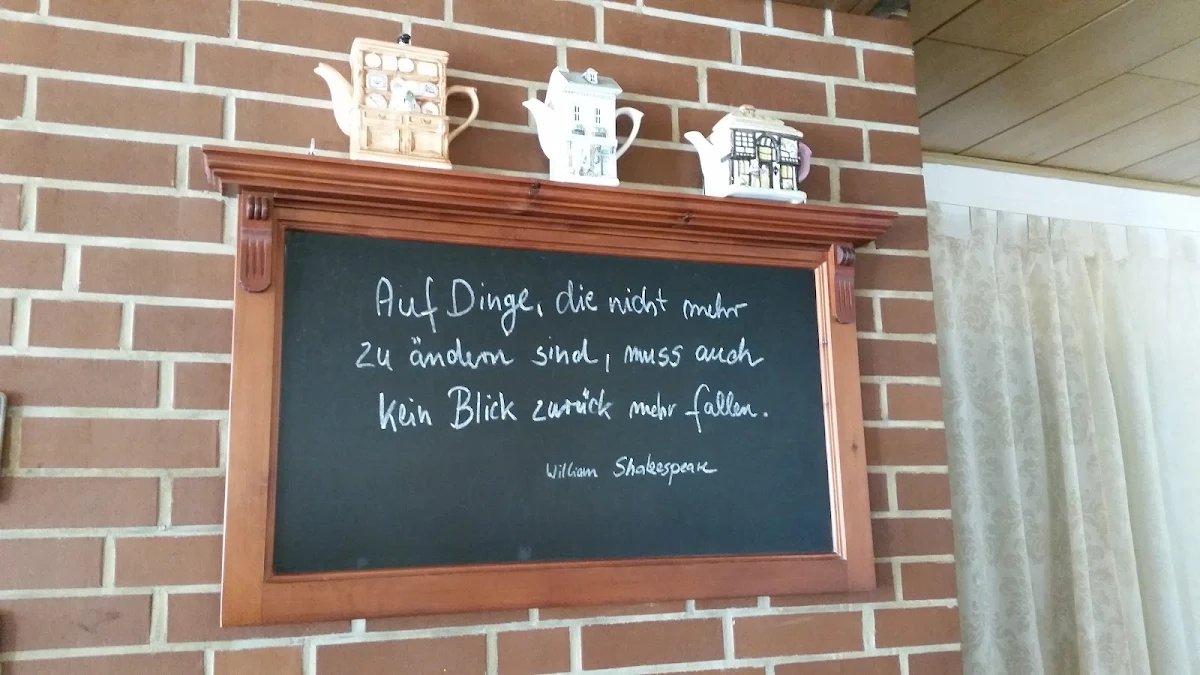 Auf Dinge, die nicht mehr
zu ändern sind, muss auch
kein Blick zurück mehr fallen.
William Shakespeare